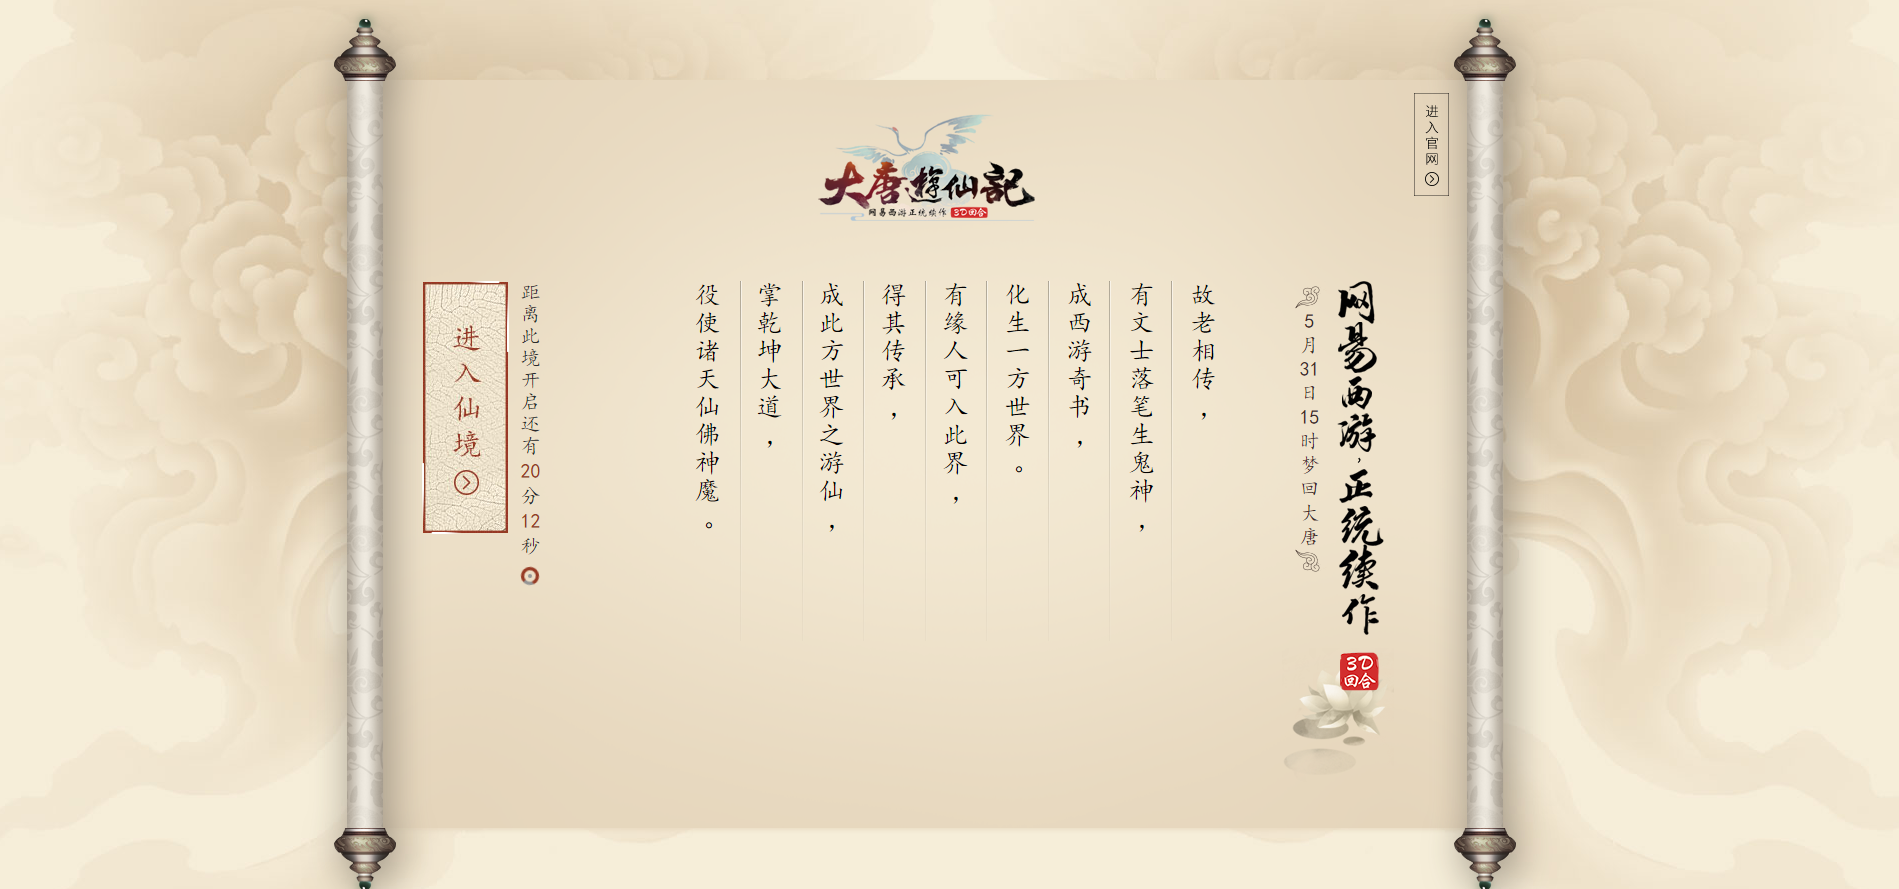 大唐遊仙記
网易西游正统续作 3D回合
进入官网
网易西游，正统续作
3D
回合
5月31日15时梦回大唐
故老相传，
有文士落笔生鬼神，
成西游奇书，
化生一方世界。
有缘人可入此界，
得其传承，
成此方世界之游仙，
掌乾坤大道，
役使诸天仙佛神魔。
距离此境开启还有20分12秒
进入仙境